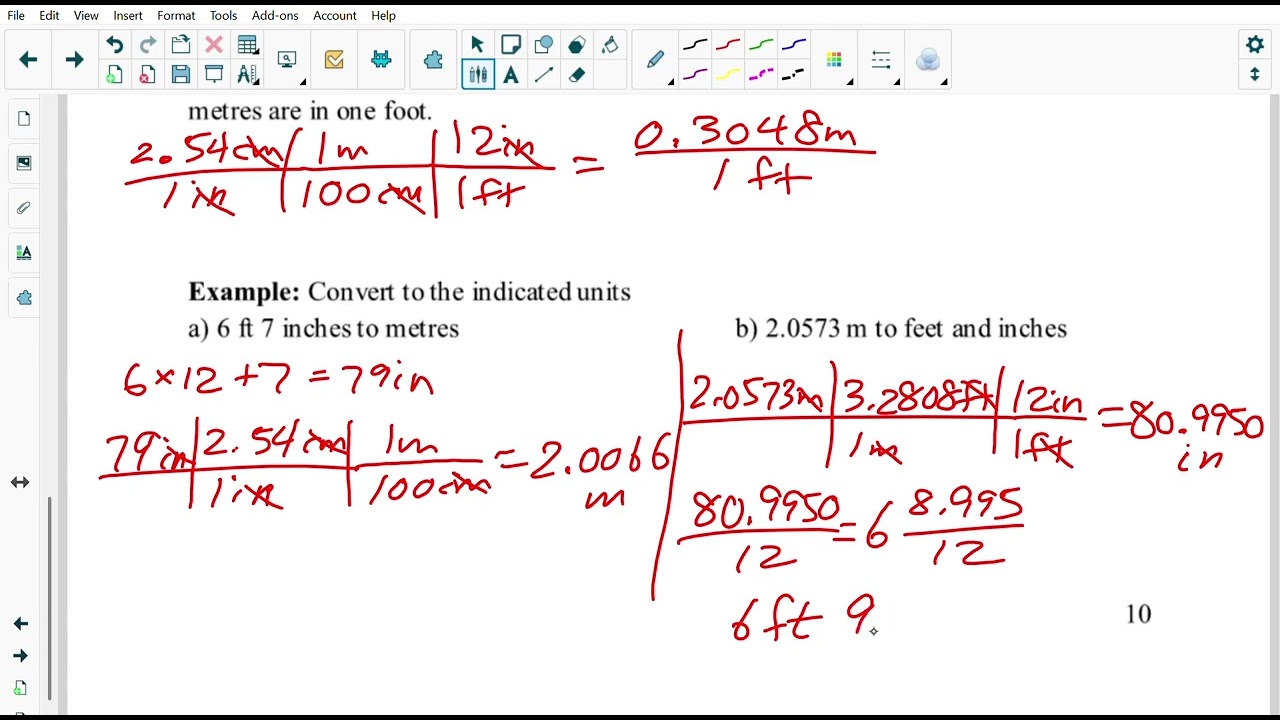 File Edit View Insert Format Tools Add-ons Account Help
A
metres are in one foot.
2.54cm 1m 12in = 0.3048m
1in 100cm 1ft 1 ft
Example: Convert to the indicated units
a) 6 ft 7 inches to metres
6×12+7=79in
79in 2.54cm 1m = 2.0066
1in 100cm m
b) 2.0573 m to feet and inches
2.0573m 3.2808ft 12in = 80.9950
1m 1ft in
80.9950 = 6 8.995
12 12
6ft 9
10